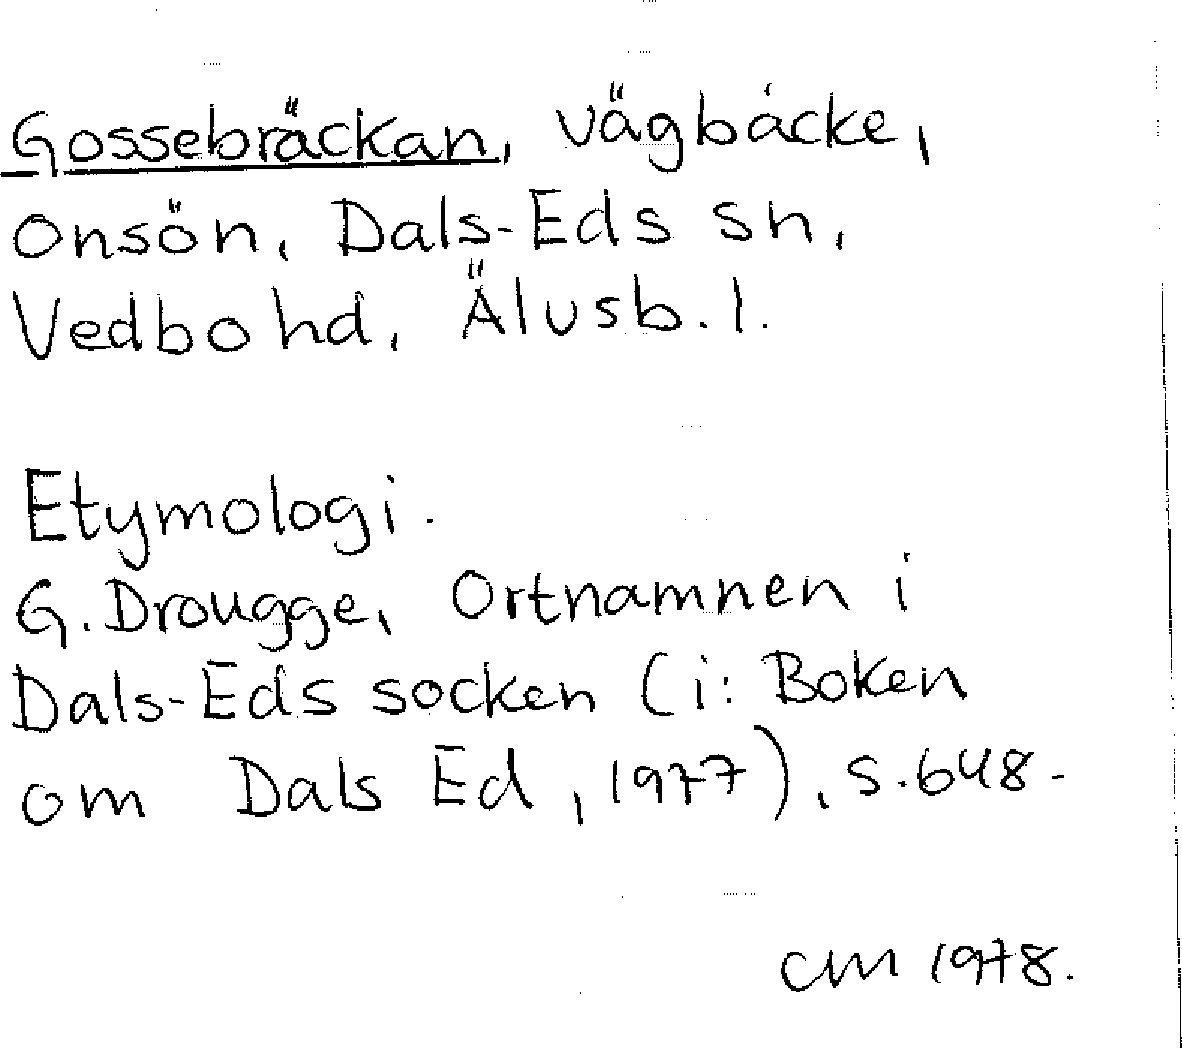 Gossebräckan, vägbäcke,
Onsön, Dals-Eds sn,
Vedbo hd, Älvsb. l.
Etymologi.
G. Drougge, Ortnamnen i
Dals-Eds socken (i: Boken
om Dals Ed, 1977), s. 648.
CM 1978.